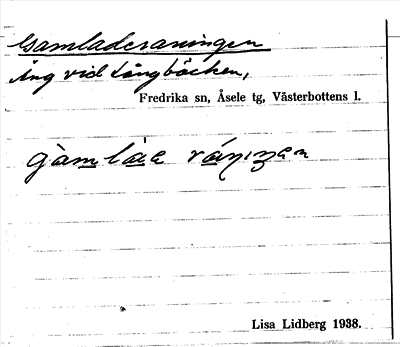 Gamladesraningen
Äng vid Långbäcken,
Fredrika sn, Åsele tg, Västerbottens l.
Lisa Lidberg 1938.